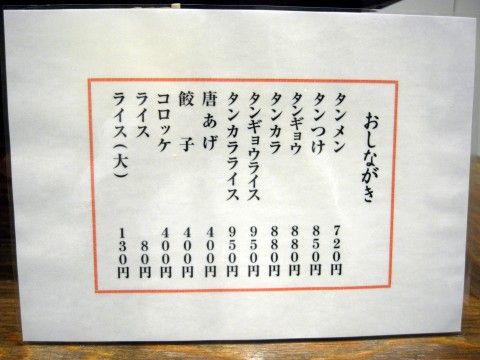 おしながき
タンメン 720円
タンつけ 850円
タンギョウ 880円
タンカラ 880円
タンギョウライス 950円
タンカラライス 950円
唐あげ 400円
餃子 400円
コロッケ 400円
ライス 80円
ライス(大) 130円